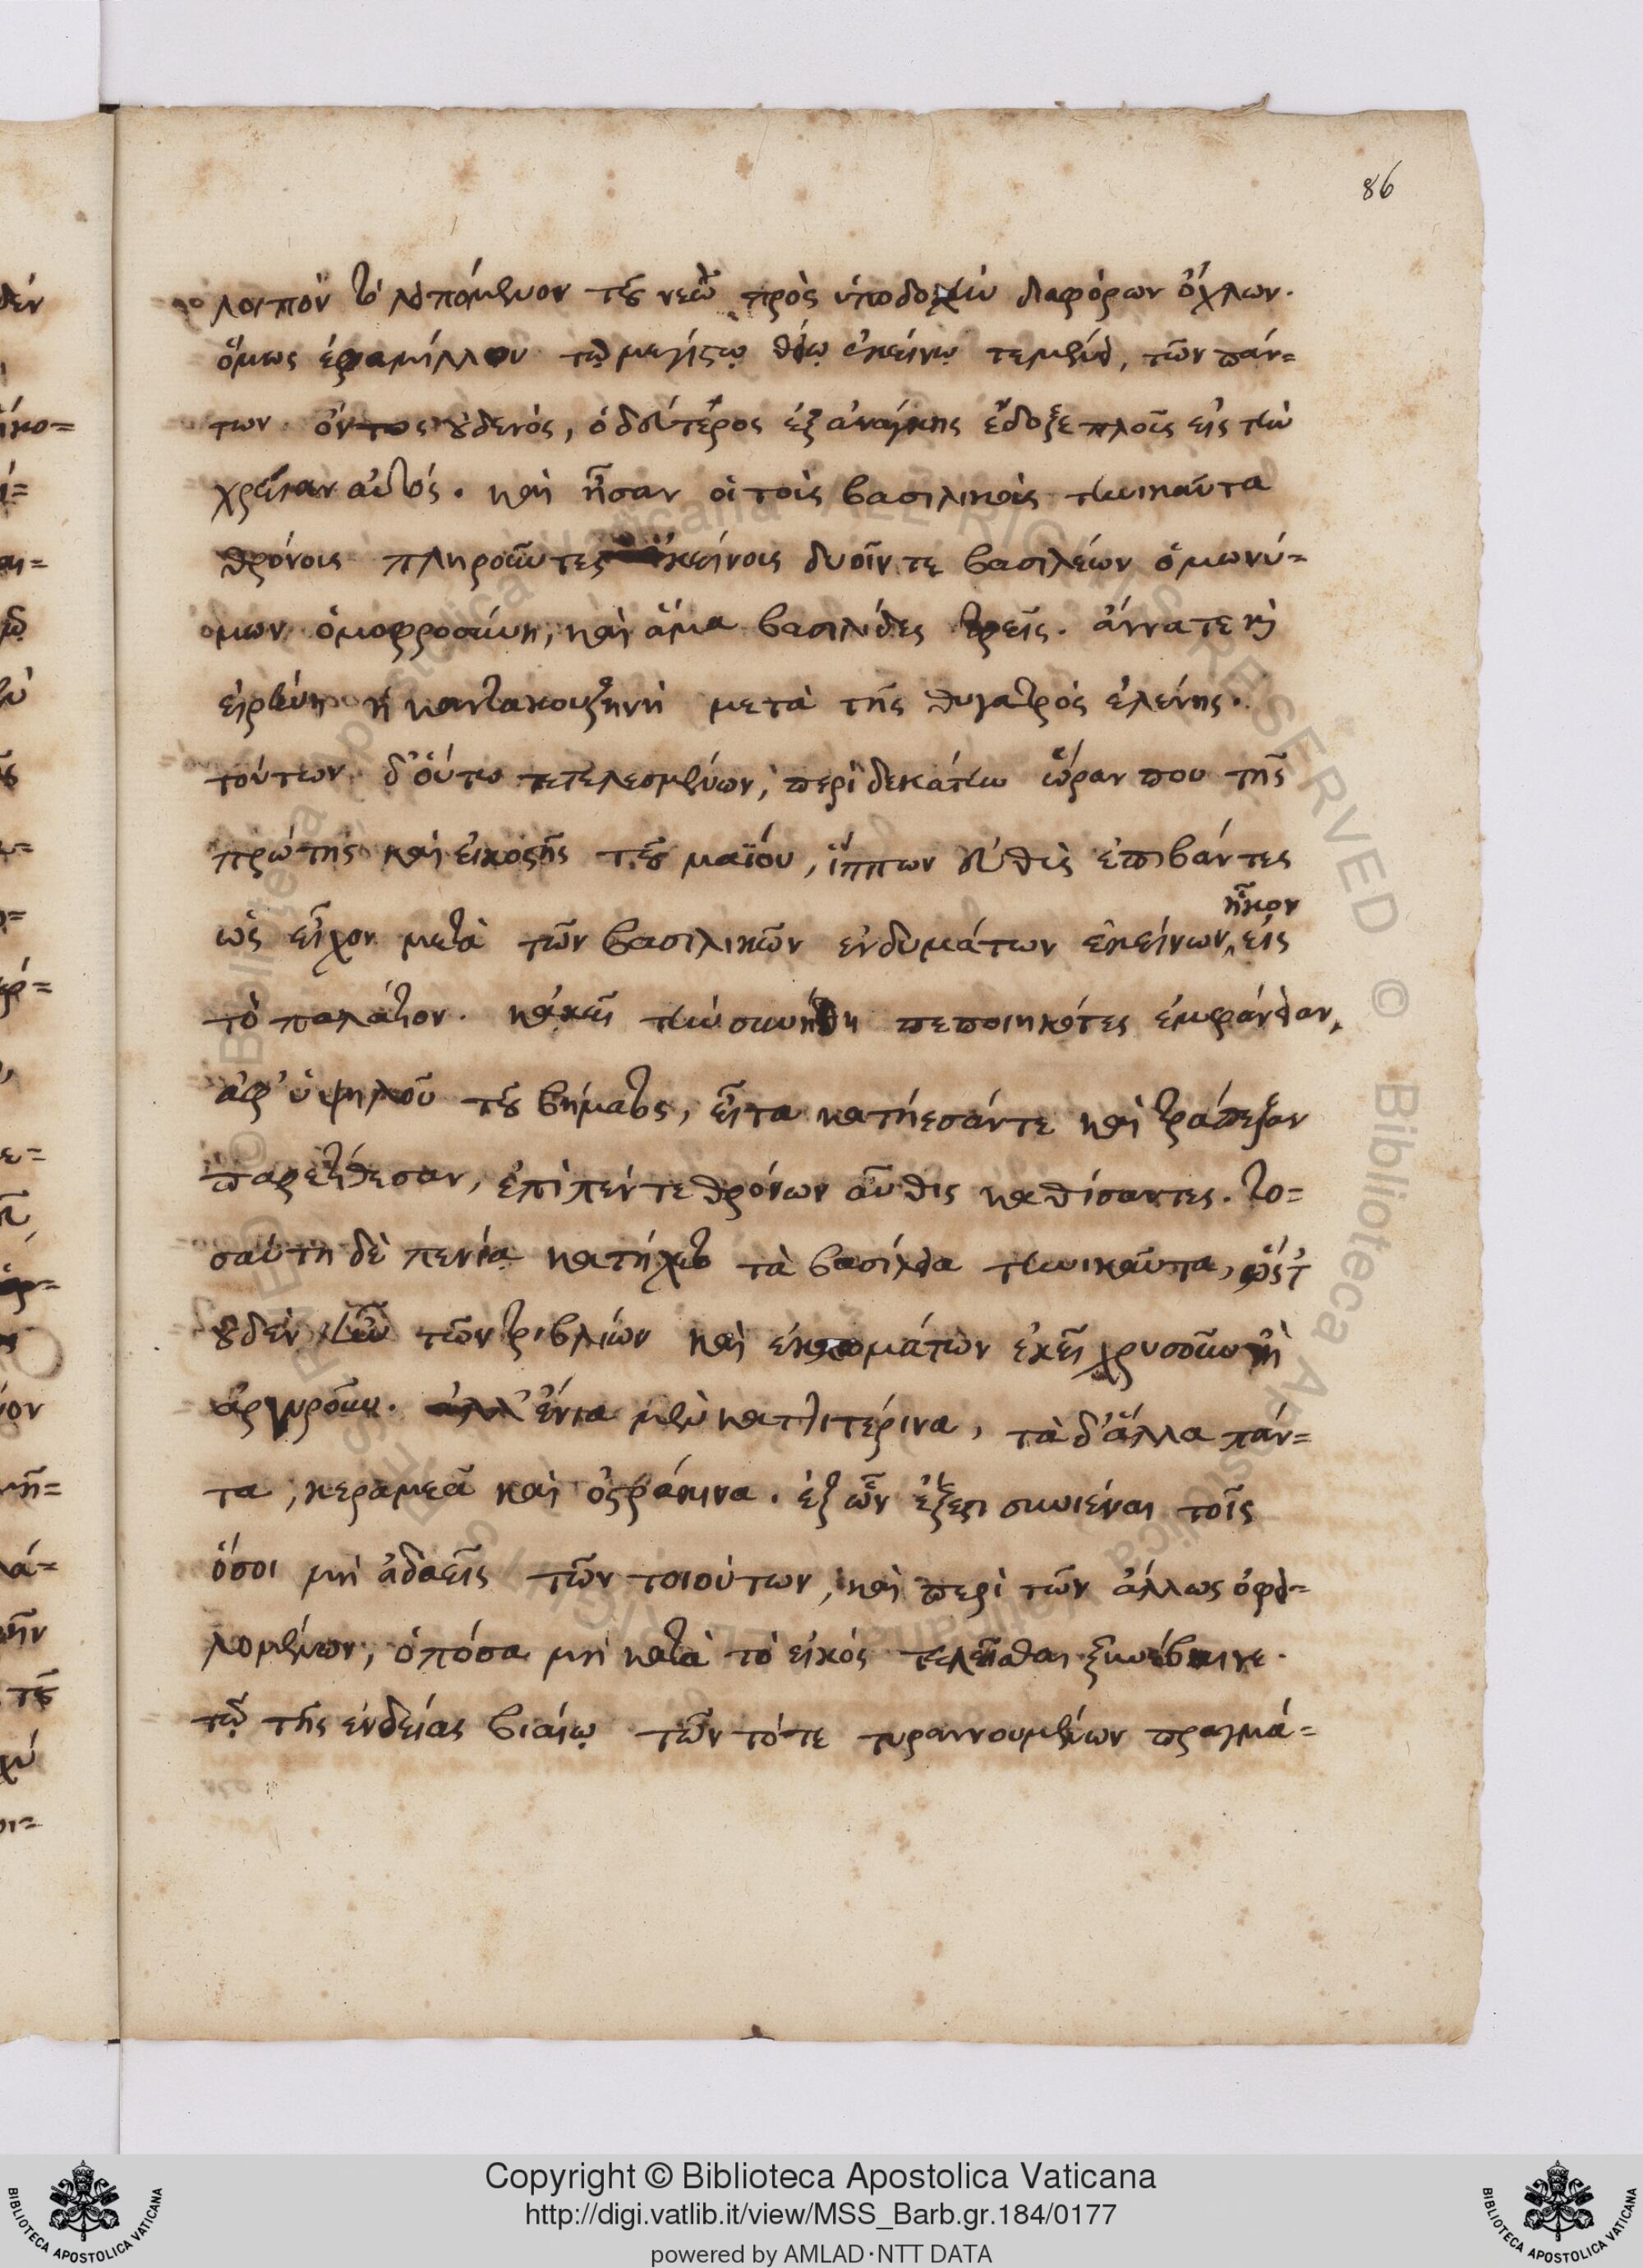 86
λοιπὸν τὸ λειπόμενον τοῦ νεὼ πρὸς ὑποδοχὴν διαφόρων ὄχλων.
ὅμως ἐφαμίλλου τῷ μεγίστῳ θείῳ ἐκείνῳ τεμένει, τῶν πάν=
των ὄντος οὐδενός, ὁ δεύτερος ἐξ ἀνάγκης ἔδοξε πλοῦς εἰς τὴν
χρείαν αὐτός. καὶ ἦσαν οἱ τοῖς βασιλικοῖς τηνικαῦτα
θρόνοις πληροῦντες ἐκείνοις δυοῖν τε βασιλέων ὁμωνύ=
μων ὁμοφροσύνη, καὶ ἅμα βασιλίδες τρεῖς. ἄννα τε καὶ
εἰρήνη ἡ καντακουζηνὴ μετὰ τῆς θυγατρὸς ἑλένης.
τούτων δ' οὕτω τετελεσμένων, περὶ δεκάτην ὥραν που τῆς
πρώτης καὶ εἰκοστῆς τοῦ μαΐου, ἵππων εὐθὺς ἐπιβάντες
ὡς εἶχον μετὰ τῶν βασιλικῶν ἐνδυμάτων ἐκείνων, ἧκον εἰς
τὸ παλάτιον. κἀκεῖ τὴν συνήθη πεποιηκότες ἐμφάνειαν,
ἀφ' ὑψηλοῦ τοῦ βήματος, εἶτα κατῄεσάν τε καὶ τράπεζαν
παρετίθεσαν, ἐπὶ πέντε θρόνων αὖθις καθίσαντες. το=
σαύτη δὲ πενία κατήχετο τὰ βασίλεια τηνικαῦτα, ὥστ'
οὐδὲν ἦν τῶν τρυβλίων καὶ ἐκπωμάτων ἐκεῖ χρυσοῦν ἢ
ἀργυροῦν. ἀλλ' ἔνια μὲν κατλιτέρινα, τὰ δ' ἄλλα πάν=
τα, κεραμεᾶ καὶ ὀστράκινα. ἐξ ὧν ἔξεστι συνιέναι τοῖς
ὅσοι μὴ ἀδαεῖς τῶν τοιούτων, καὶ περὶ τῶν ἄλλως ὀφει=
λομένων, ὁπόσα μὴ κατὰ τὸ εἰκὸς τελεῖσθαι ξυνέβαινε.
τῷ τῆς ἐνδείας βιαίῳ τῶν τότε τυραννουμένων πραγμά=
Copyright © Biblioteca Apostolica Vaticana
http://digi.vatlib.it/view/MSS_Barb.gr.184/0177
powered by AMLAD·NTT DATA